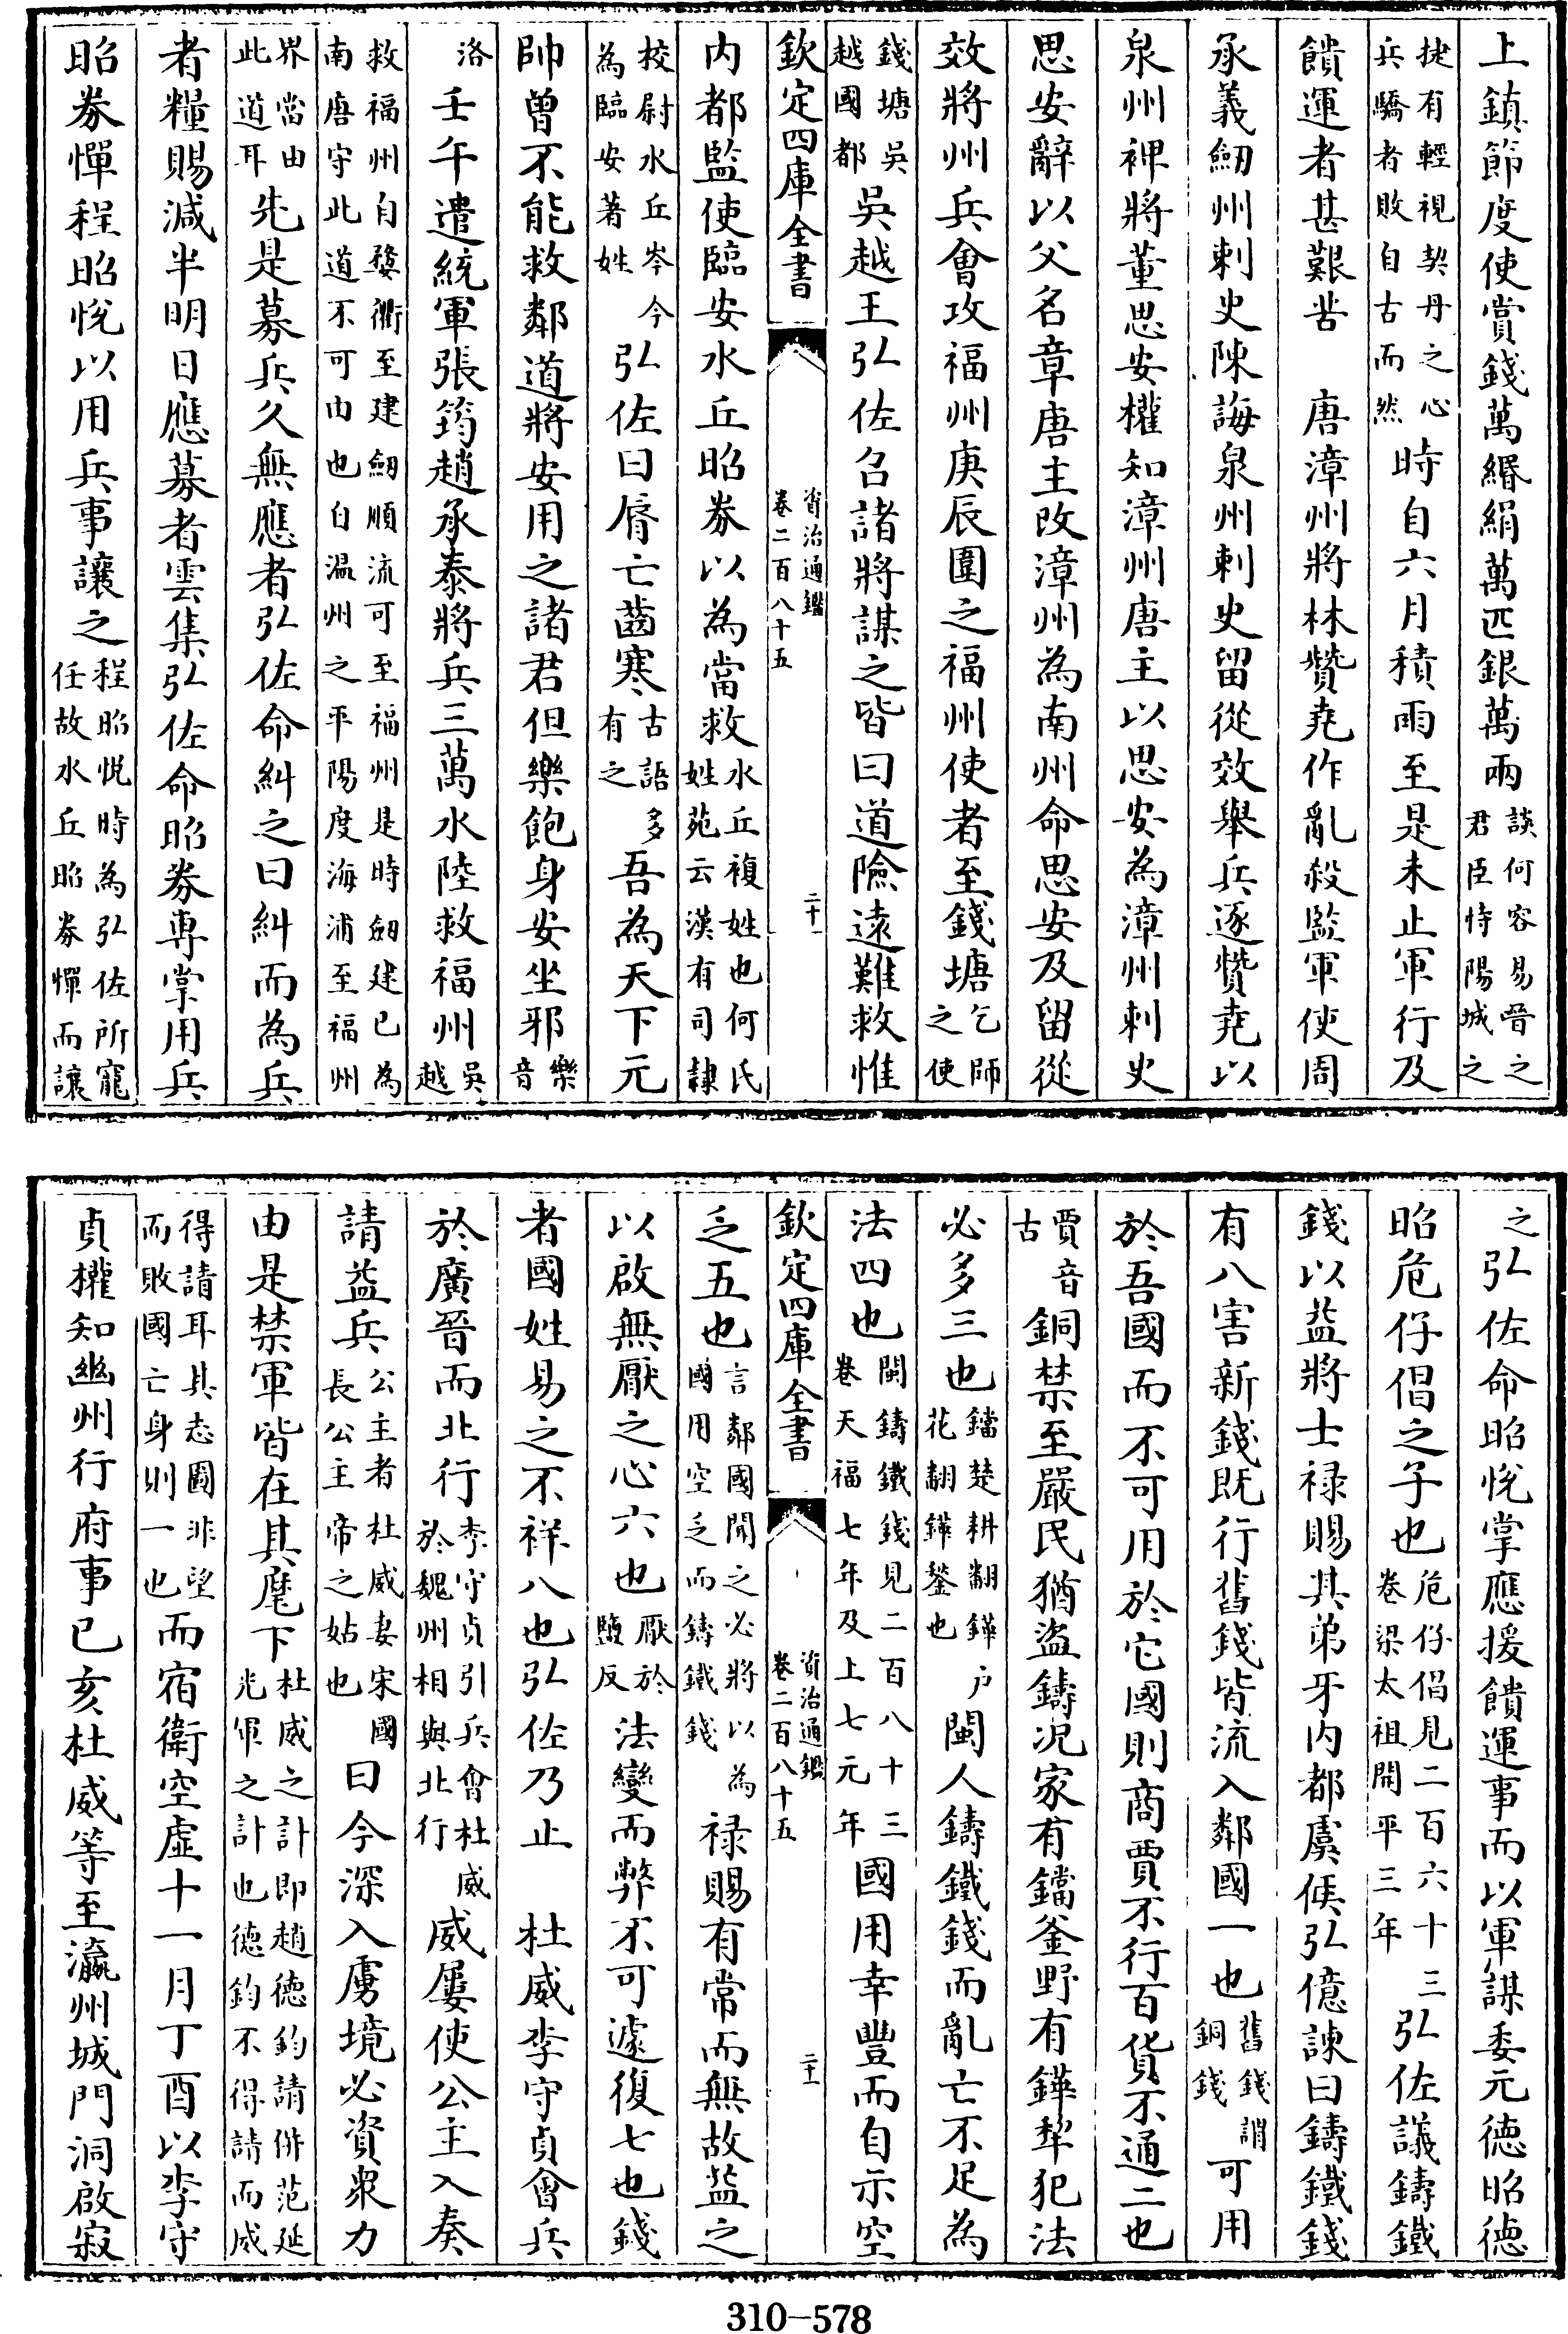 上鎮節度使賞錢萬緡絹萬匹銀萬兩談何容易晉之君臣恃陽城之
捷有輕視契丹之心兵驕者敗自古而然時自六月積雨至是未止軍行及
饋運者甚艱苦　唐漳州將林贊堯作亂殺監軍使周
承義劒州刺史陳誨泉州刺史留從效舉兵逐贊堯以
泉州裨將董思安權知漳州唐主以思安為漳州刺史
思安辭以父名章唐主改漳州為南州命思安及留從
效將州兵會攻福州庚辰圍之福州使者至錢塘乞師之使
錢塘吳越國都吳越王弘佐召諸將謀之皆曰道險遠難救惟
欽定四庫全書　資治通鑑卷二百八十五　二十
内都監使臨安水丘昭券以為當救水丘複姓也何氏姓苑云漢有司隸
校尉水丘岑今為臨安著姓弘佐曰脣亡齒寒古語多有之吾為天下元
帥曾不能救鄰道將安用之諸君但樂飽身安坐邪樂音
洛壬午遣統軍張筠趙承泰將兵三萬水陸救福州吳越
救福州自婺衢至建劒順流可至福州是時劒建已為南唐守此道不可由也自温州之平陽度海浦至福州
界當由此道耳先是募兵久無應者弘佐命糾之曰糾而為兵
者糧賜減半明日應募者雲集弘佐命昭券專掌用兵
昭券憚程昭悅以用兵事讓之程昭悦時為弘佐所寵任故水丘昭券憚而讓
之弘佐命昭悅掌應援饋運事而以軍謀委元德昭德
昭危仔倡之子也危仔倡見二百六十三卷梁太祖開平三年弘佐議鑄鐵
錢以益將士禄賜其弟牙内都虞候弘億諫曰鑄鐵錢
有八害新錢既行舊錢皆流入鄰國一也舊錢謂銅錢可用
於吾國而不可用於它國則商賈不行百貨不通二也
賈音古銅禁至嚴民猶盜鑄况家有鐺釜野有鏵犂犯法
必多三也鐺楚耕翻鏵戶花翻鏵鍫也閩人鑄鐵錢而亂亡不足為
法四也閩鑄鐵錢見二百八十三卷天福七年及上七元年國用幸豐而自示空
欽定四庫全書　資治通鑑卷二百八十五　二十一
乏五也言鄰國聞之必將以為國用空乏而鑄鐵錢禄賜有常而無故益之
以啟無厭之心六也厭於鹽反法變而弊不可遽復七也錢
者國姓易之不祥八也弘佐乃止　杜威李守貞會兵
於廣晉而北行李守貞引兵會杜威於魏州相與北行威屢使公主入奏
請益兵公主者杜威妻宋國長公主帝之姑也曰今深入虜境必資衆力
由是禁軍皆在其麾下杜威之計即趙德鈞請併范延光軍之計也德鈞不得請而威
得請耳其志圖非望而敗國亡身則一也而宿衛空虛十一月丁酉以李守
貞權知幽州行府事已亥杜威等至瀛州城門洞啟寂
310-578